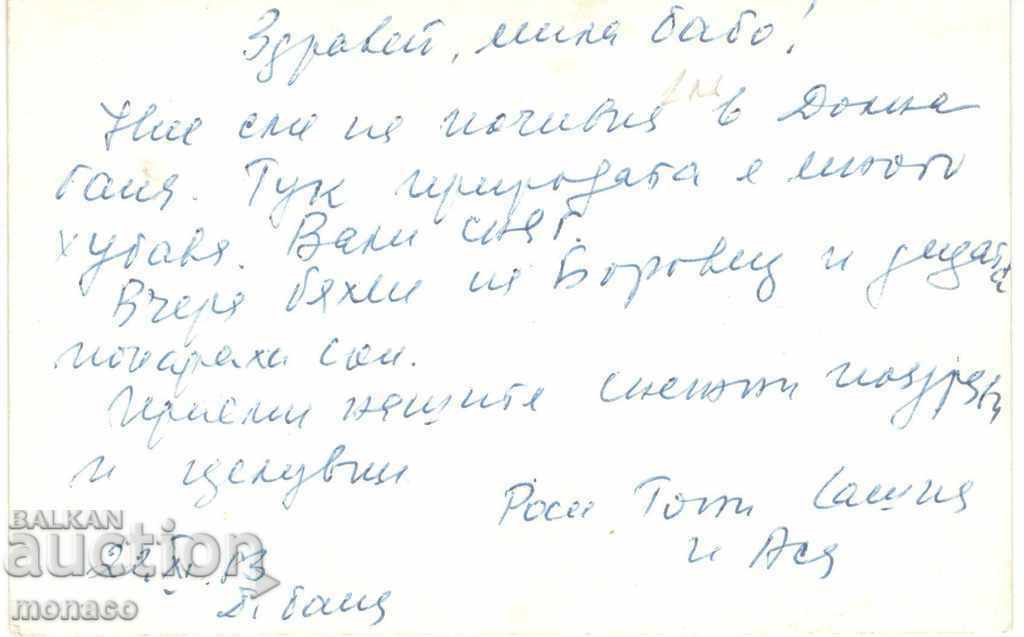 Здравей, мила бабо!
Ние сме на почивка в Долна
баня. Тук природата е много
хубава. Вали сняг.
Вчера бяхме на Боровец и децата
покараха ски.
Приеми нашите снежни поздрави
и целувки
Роси Тони Сашка
и Ася
22.XI.83
Д. баня
BALKAN
auction
monaco